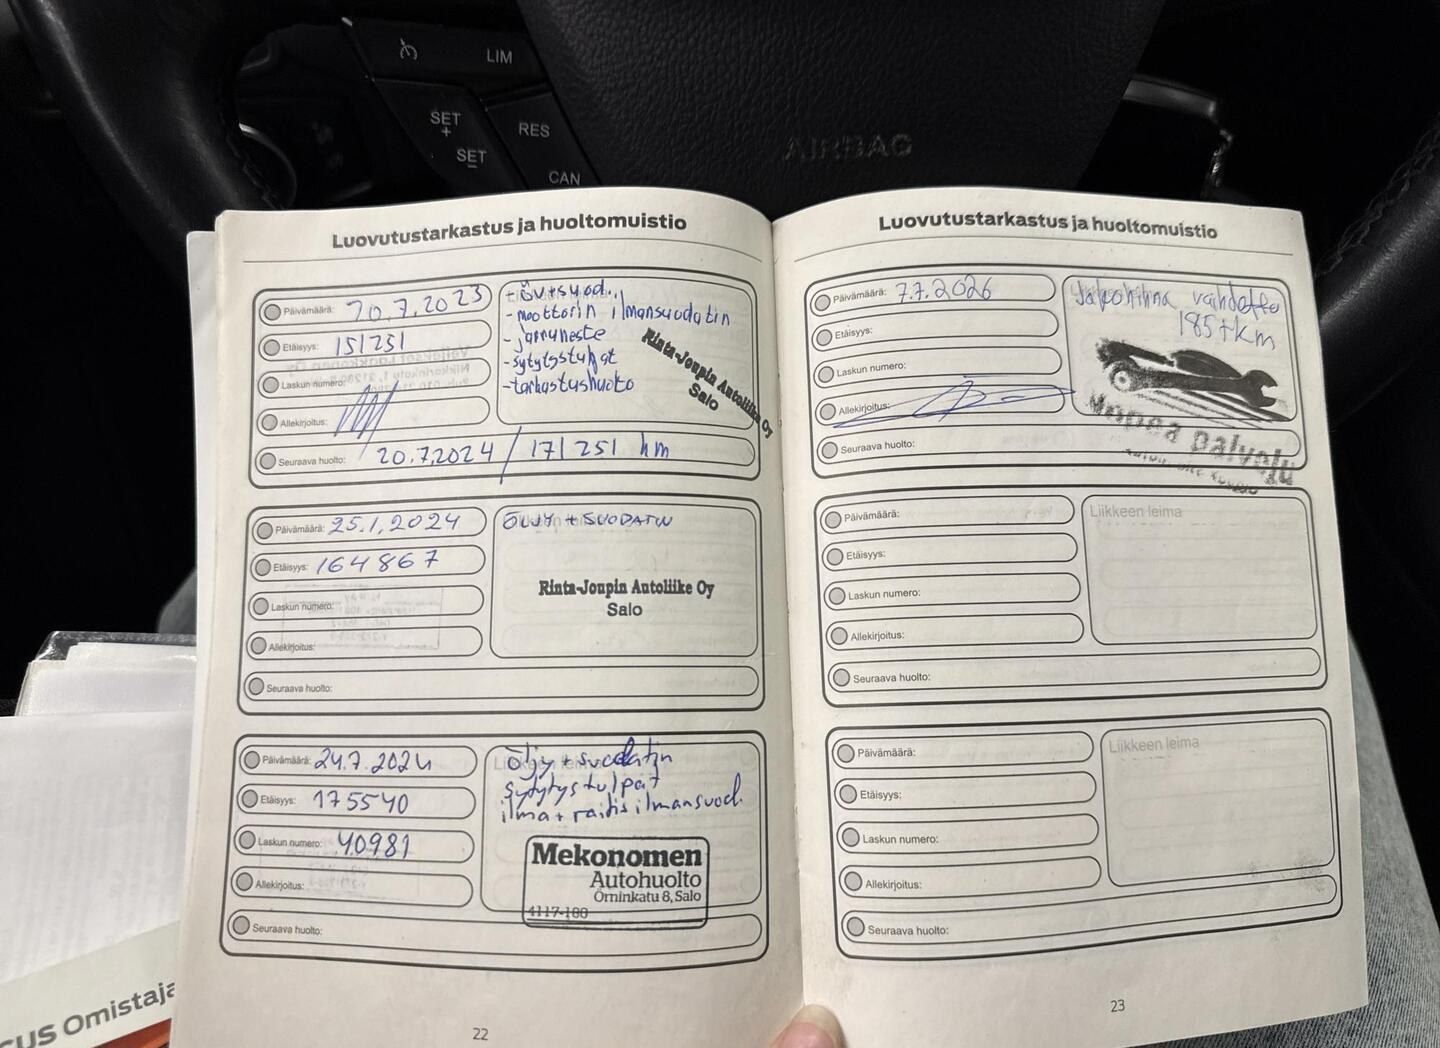 LIM
SET
+
RES
SET
-
CAN
AIRBAG
Luovutustarkastus ja huoltomuistio
Päivämäärä: 20.7.2023
Etäisyys: 151251
Laskun numero:
Allekirjoitus:
Seuraava huolto: 20.7.2024 / 171251 km
- öv+suod.
- moottorin ilmansuodatin
- jarruneste
- sytytystulpat
- tarkastushuolto
Rinta-Joupin Autoliike Oy
Salo
Päivämäärä: 25.1.2024
Etäisyys: 164867
Laskun numero:
Allekirjoitus:
Seuraava huolto:
ÖLJY + SUODATIN
Rinta-Joupin Autoliike Oy
Salo
Päivämäärä: 24.7.2024
Etäisyys: 175540
Laskun numero: 40981
Allekirjoitus:
Seuraava huolto:
Öljy + suodatin
sytytystulpat
ilma + raitisilmansuod.
Mekonomen
Autohuolto
Örninkatu 8, Salo
4117-100
22
Luovutustarkastus ja huoltomuistio
Päivämäärä: 7.7.2026
Etäisyys:
Laskun numero:
Allekirjoitus:
Seuraava huolto:
Jakohihna vaihdettu
185tkm
Nopea palvelu
Päivämäärä:
Etäisyys:
Laskun numero:
Allekirjoitus:
Seuraava huolto:
Liikkeen leima
Päivämäärä:
Etäisyys:
Laskun numero:
Allekirjoitus:
Seuraava huolto:
Liikkeen leima
23
CUS Omistaja